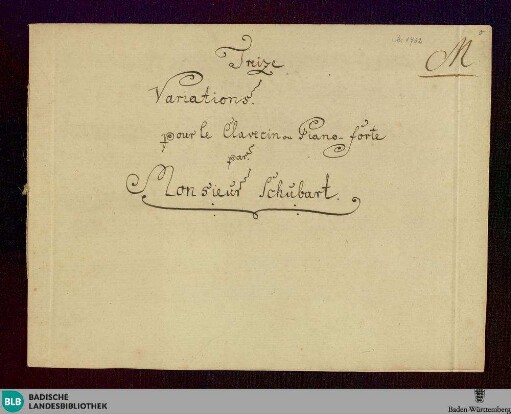 M
Treize
Variations.
pour le Clavecin ou Piano-forte
par
Monsieur Schubart.
BLB
BADISCHE
LANDESBIBLIOTHEK
Baden-Württemberg